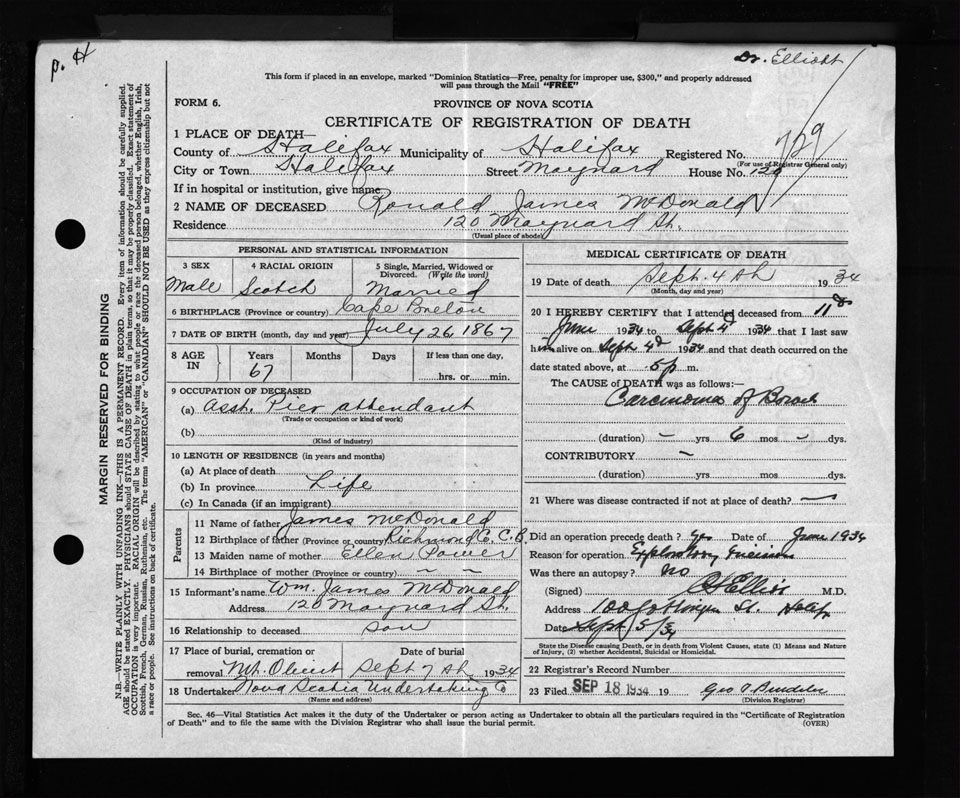 p. H
Dr. Elliott
This form if placed in an envelope, marked "Dominion Statistics—Free, penalty for improper use, $300," and properly addressed
will pass through the Mail "FREE"
FORM 6.
PROVINCE OF NOVA SCOTIA
CERTIFICATE OF REGISTRATION OF DEATH
1 PLACE OF DEATH—
County of Halifax Municipality of Halifax Registered No. 729
(For use of Registrar General only)
City or Town Halifax Street Maynard House No. 120
If in hospital or institution, give name
2 NAME OF DECEASED Ronald James McDonald
Residence 120 Maynard St.
(Usual place of abode)
PERSONAL AND STATISTICAL INFORMATION
3 SEX 4 RACIAL ORIGIN 5 Single, Married, Widowed or
Divorced. (Write the word)
Male Scotch Married
6 BIRTHPLACE (Province or country) Cape Breton
7 DATE OF BIRTH (month, day and year) July 26 1867
8 AGE IN Years Months Days If less than one day,
67 hrs. or min.
9 OCCUPATION OF DECEASED
(a) Asst. Pier attendant
(Trade or occupation or kind of work)
(b)
(Kind of industry)
10 LENGTH OF RESIDENCE (in years and months)
(a) At place of death
(b) In province Life
(c) In Canada (if an immigrant)
Parents
11 Name of father James McDonald
12 Birthplace of father (Province or country) Richmond Co. C.B.
13 Maiden name of mother Ellen Power
14 Birthplace of mother (Province or country) — —
15 Informant's name Wm. James McDonald
Address 120 Maynard St.
16 Relationship to deceased son
17 Place of burial, cremation or Date of burial
removal Mt. Olivet Sept 7th 1934
18 Undertaker Nova Scotia Undertaking Co
(Name and address)
MEDICAL CERTIFICATE OF DEATH
19 Date of death Sept. 4th 1934
(Month, day and year)
20 I HEREBY CERTIFY that I attended deceased from 11th
June 1934 to Sept 4th 1934 that I last saw
him alive on Sept 4th 1934 and that death occurred on the
date stated above, at 5 p m.
The CAUSE of DEATH was as follows:
Carcinoma of
(duration) — yrs 6 mos — dys.
CONTRIBUTORY —
(duration) yrs mos dys.
21 Where was disease contracted if not at place of death? —
Did an operation precede death? Yes Date of June 1934
Reason for operation Exploratory Incision
Was there an autopsy? no
(Signed) Elliott M.D.
Address St. Halifax
Date Sept 5/34
State the Disease causing Death, or in death from Violent Causes, state (1) Means and Nature
of Injury, (2) whether Accidental, Suicidal or Homicidal.
22 Registrar's Record Number
23 Filed SEP 18 1934 19 Geo
(Division Registrar)
Sec. 46—Vital Statistics Act makes it the duty of the Undertaker or person acting as Undertaker to obtain all the particulars required in the "Certificate of Registration
of Death" and to file the same with the Division Registrar who shall issue the burial permit. (OVER)
MARGIN RESERVED FOR BINDING
N.B.—WRITE PLAINLY WITH UNFADING INK—THIS IS A PERMANENT RECORD. Every item of information should be carefully supplied.
AGE should be stated EXACTLY. PHYSICIANS should STATE CAUSE OF DEATH in plain terms, so that it may be properly classified. Exact statement of
OCCUPATION is very important. RACIAL ORIGIN will be described by stating to what people or race the deceased person belonged, whether English, Irish,
Scottish, French, German, Russian, Ruthenian, etc. The terms "AMERICAN" or "CANADIAN" SHOULD NOT BE USED as they express citizenship but not
a race or people. See instructions on back of certificate.